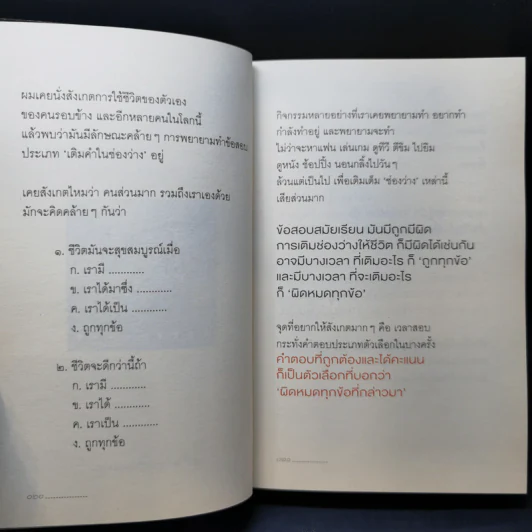 ผมเคยนั่งสังเกตการใช้ชีวิตของตัวเอง
ของคนรอบข้าง และอีกหลายคนในโลกนี้
แล้วพบว่ามันมีลักษณะคล้ายๆ การพยายามทำข้อสอบ
ประเภท ‘เติมคำในช่องว่าง’ อยู่
เคยสังเกตไหมว่า คนส่วนมาก รวมถึงเราเองด้วย
มักจะคิดคล้ายๆ กันว่า
๑. ชีวิตมันจะสุขสมบูรณ์เมื่อ
ก. เรามี ............
ข. เราได้มาซึ่ง ............
ค. เราได้เป็น ............
ง. ถูกทุกข้อ
๒. ชีวิตจะดีกว่านี้ถ้า
ก. เรามี ............
ข. เราได้ ............
ค. เราเป็น ............
ง. ถูกทุกข้อ
กิจกรรมหลายอย่างที่เราเคยพยายามทำ อยากทำ
กำลังทำอยู่ และพยายามจะทำ
ไม่ว่าจะหาแฟน เล่นเกม ดูทีวี ตีซิม ไปยิม
ดูหนัง ช้อปปิ้ง นอนกลิ้งไปวันๆ
ล้วนแต่เป็นไป เพื่อเติมเต็ม ‘ช่องว่าง’ เหล่านี้
เสียส่วนมาก
ข้อสอบสมัยเรียน มันมีถูกมีผิด
การเติมช่องว่างให้ชีวิต ก็มีผิดได้เช่นกัน
อาจมีบางเวลา ที่เติมอะไร ก็ ‘ถูกทุกข้อ’
และมีบางเวลา ที่จะเติมอะไร
ก็ ‘ผิดหมดทุกข้อ’
จุดที่อยากให้สังเกตมากๆ คือ เวลาสอบ
กระทั่งคำตอบประเภทตัวเลือกในบางครั้ง
คำตอบที่ถูกต้องและได้คะแนน
ก็เป็นตัวเลือกที่บอกว่า
‘ผิดหมดทุกข้อที่กล่าวมา’